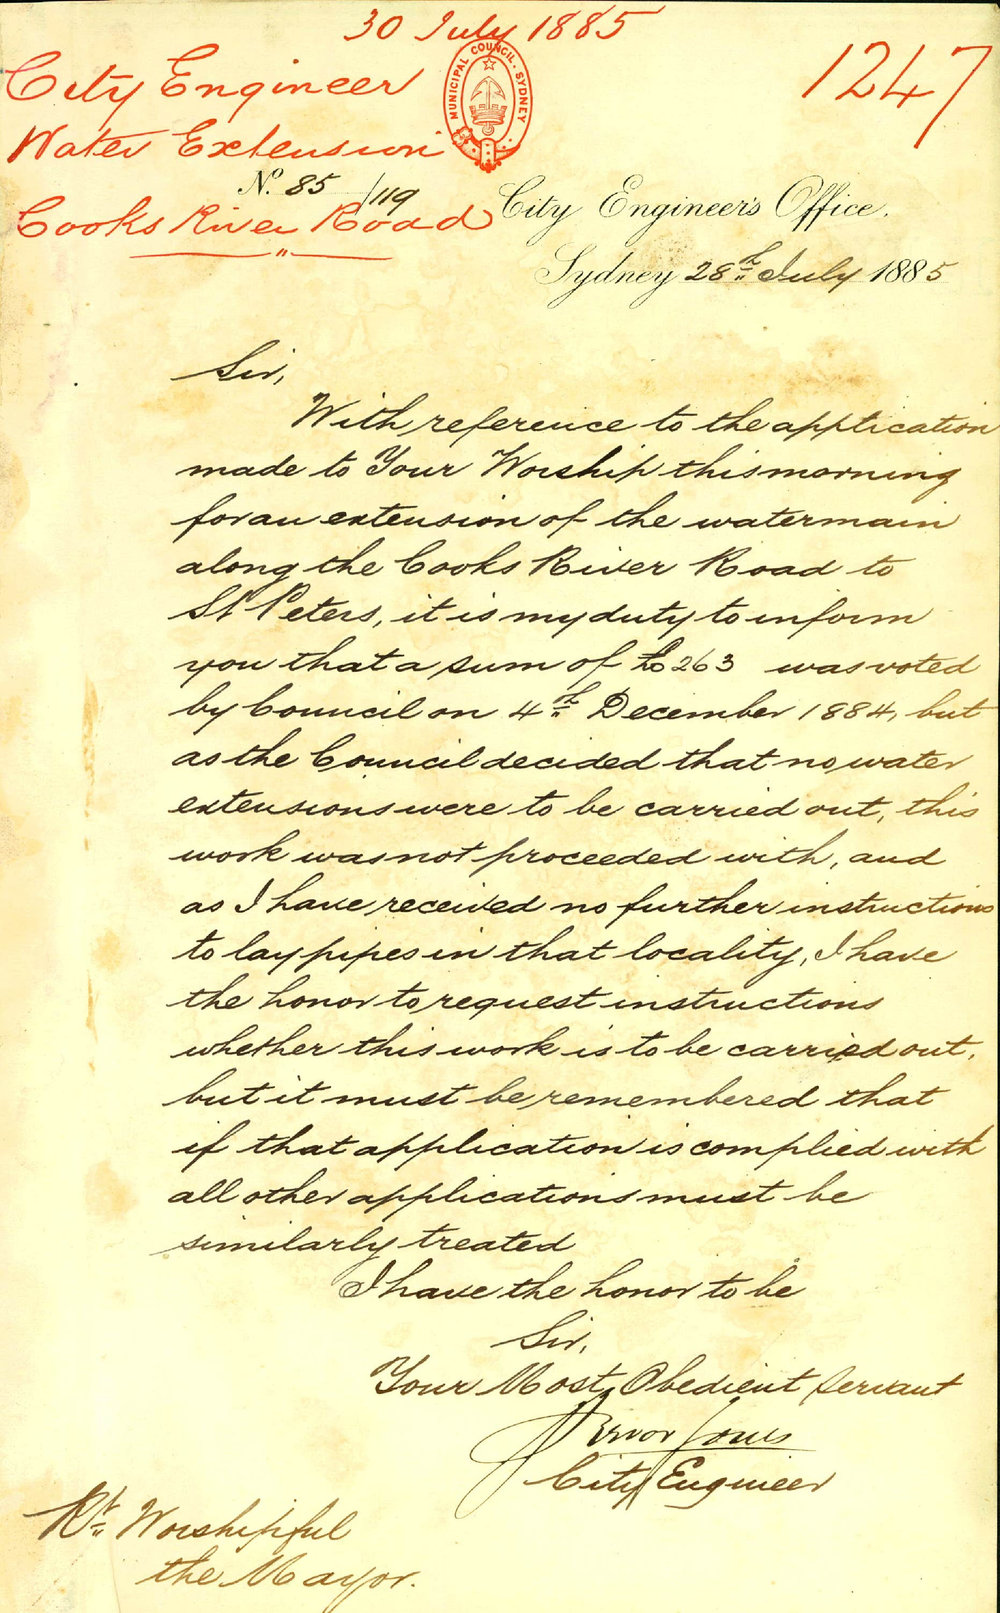 30 July 1885
1247
City Engineer
MUNICIPAL COUNCIL. SYDNEY
Water Extension
No. 85/119
Cooks River Road
City Engineer's Office.
Sydney 28th July 1885
Sir,
With reference to the application
made to Your Worship this morning
for an extension of the watermain
along the Cooks River Road to
St Peters, it is my duty to inform
you that a sum of £263 was voted
by Council on 4th December 1884, but
as the Council decided that no water
extensions were to be carried out, this
work was not proceeded with, and
as I have received no further instructions
to lay pipes in that locality, I have
the honor to request instructions
whether this work is to be carried out,
but it must be remembered that
if that application is complied with
all other applications must be
similarly treated
I have the honor to be
Sir,
Your Most Obedient Servant
Trevor Jones
City Engineer
Rt. Worshipful
the Mayor.